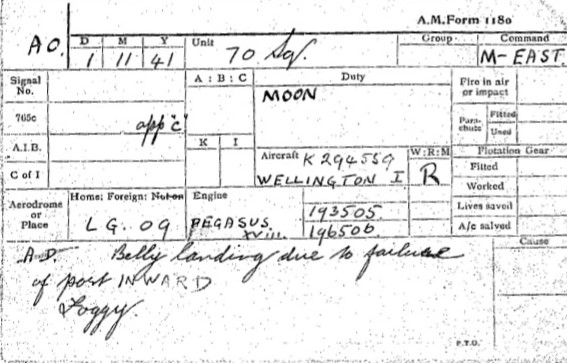 A.M. Form 1180
A O. D M Y Unit Group Command
1 11 41 70 Sq. M-EAST.
Signal No. A : B : C Duty Fire in air or impact
MOON
765c app "C" Parachute Fitted
Used
A.I.B. K I Aircraft K294559 W:R:M Flotation Gear
WELLINGTON I R Fitted
C of I Worked
Aerodrome or Place Home: Foreign: Not on Engine 193505. Lives saved
LG. 09 PEGASUS XVIII. 196506. A/c salved
A.D. Belly landing due to failure Cause
of port INWARD
Foggy.
P.T.O.